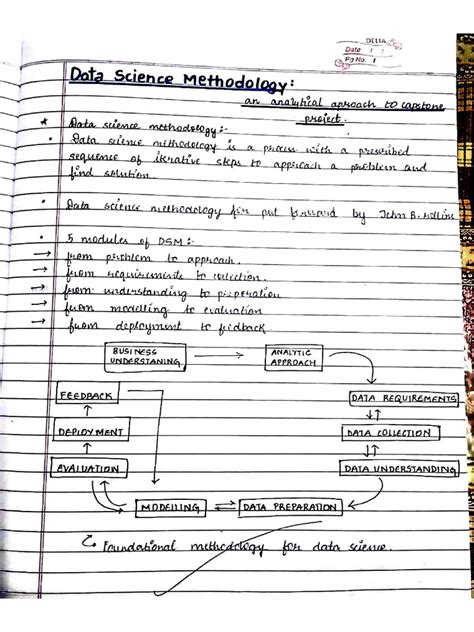 DELTA
Date
Pg No. 1
Data Science Methodology:
an analytical aproach to capstone
project.
* Data science methodology:-
• Data science methodology is a process with a prescribed
sequence of iterative steps to approach a problem and
find solution.
• Data science methodology for put forward by John B. Rollins
• 5 modules of DSM :-
→ from problem to approach.
→ from requirements to collection.
→ from understanding to preparation
→ from modelling to evaluation
→ from deployment to feedback
BUSINESS
UNDERSTANING
ANALYTIC
APPROACH
FEEDBACK
DATA REQUIREMENTS
DEPLOYMENT
DATA COLLECTION
EVALUATION
DATA UNDERSTANDING
MODELLING
DATA PREPARATION
Foundational methodology for data science.